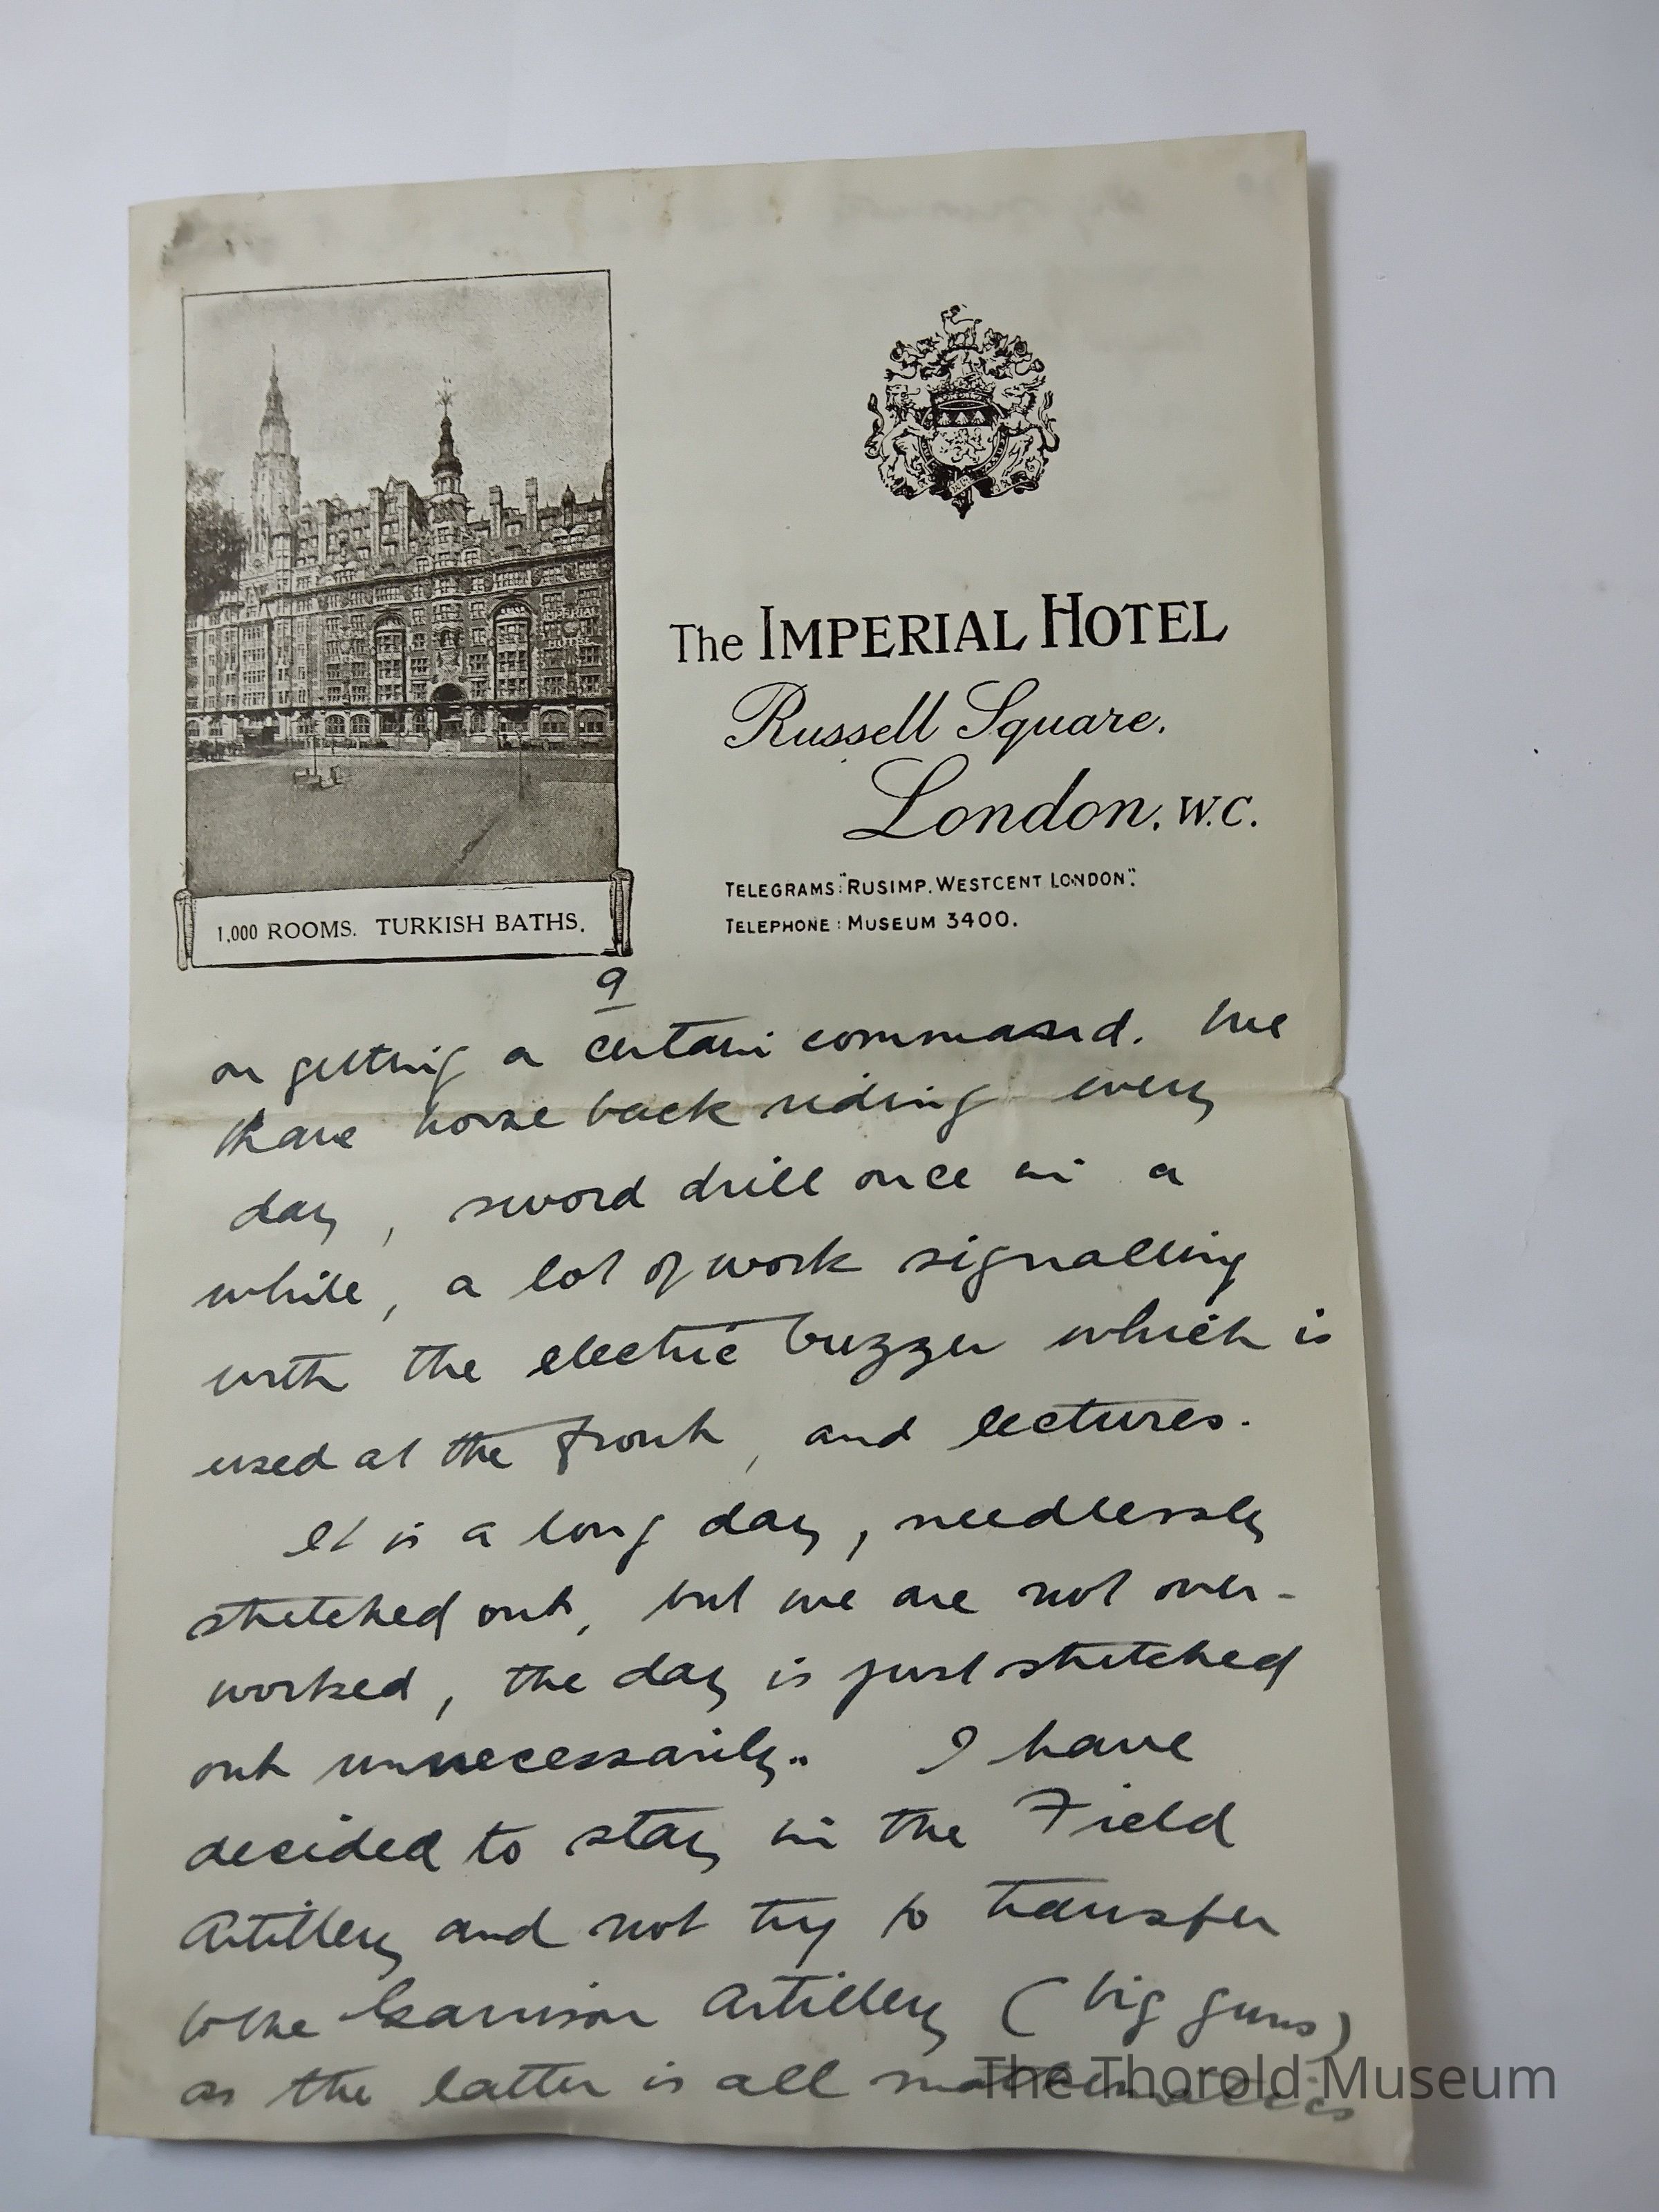 The IMPERIAL HOTEL
Russell Square,
London, W.C.
TELEGRAMS: "RUSIMP. WESTCENT LONDON".
TELEPHONE: MUSEUM 3400.
IMPERIAL
HOTEL
1,000 ROOMS. TURKISH BATHS.
9
on getting a certain command. We
have horse back riding every
day, sword drill once in a
while, a lot of work signalling
with the electric buzzer which is
used at the front, and lectures.
It is a long day, needlessly
stretched out, but we are not over-
worked, the day is just stretched
out unnecessarily.. I have
decided to stay in the Field
Artillery and not try to transfer
to the Garrison Artillery (big guns)
as the latter is all mathematics
The Thorold Museum